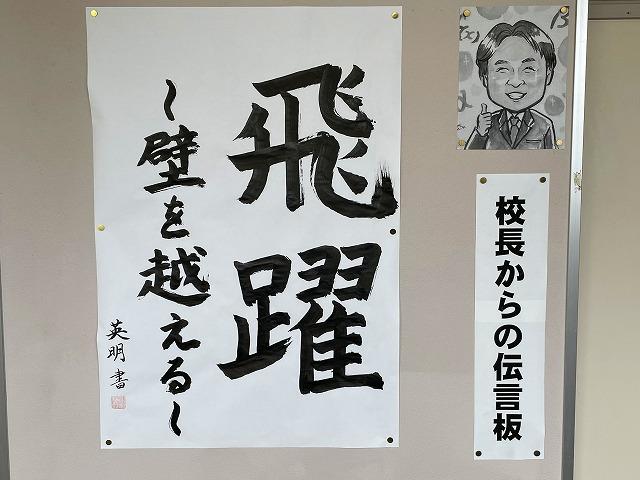 飛躍
~壁を越える~
英明書
校長からの伝言板